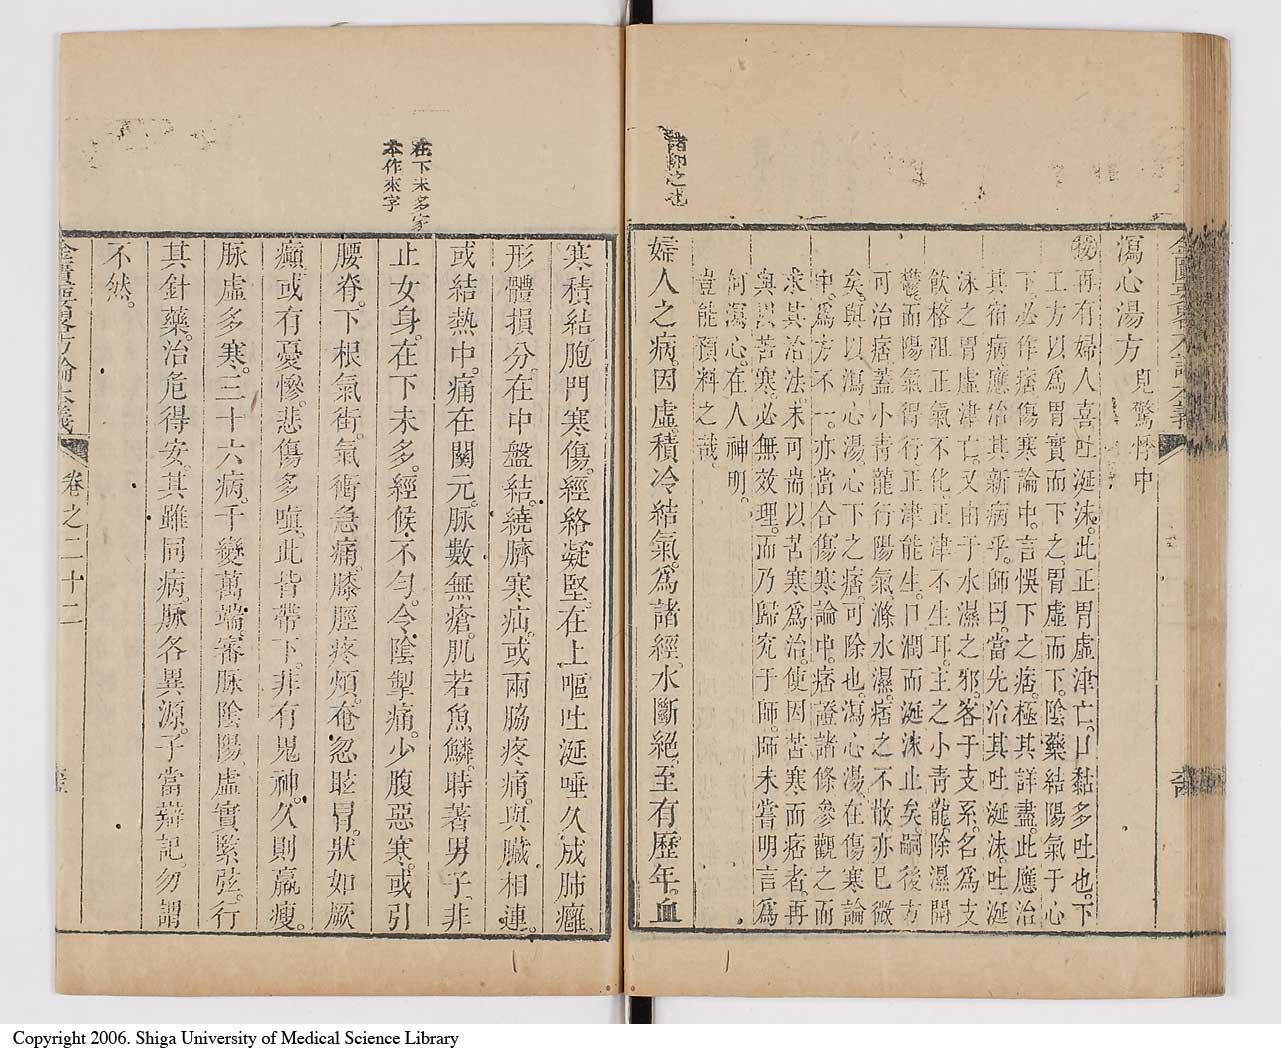 瀉心湯方見驚悸中
再有婦人喜吐涎沫。此正胃虛津亡。口黏多吐也。下
工方以爲胃實而下之。胃虛而下。陰藥結陽氣于心
下。必作痞。傷寒論中。言悞下之痞。極其詳盡。此應治
其宿病。應治其新病乎。師曰。當先治其吐涎沫。吐涎
沫之胃虛津亡。又由于水濕之邪。客于支系。名爲支
飲。格阻正氣不化。正津不生耳。主之小青龍。除濕開
鬱。而陽氣得行。正津能生。口潤而涎沫止矣。嗣後方
可治痞。蓋小青龍行陽氣滌水濕。痞之不散。亦已微
矣。與以瀉心湯。心下之痞。可除也。瀉心湯。在傷寒論
中。爲方不一。亦當合傷寒論中。痞證諸條參觀之。而
求其治法。未可耑以苦寒爲治。使因苦寒而痞者。再
與以苦寒。必無效理。而乃歸究于師。師未嘗明言爲
何瀉心。在人神明。
豈能預料之哉。
婦人之病。因虛積冷結氣。爲諸經。水斷絕。至有歷年。血
寒積結。胞門寒傷。經絡凝堅。在上嘔吐涎唾。久成肺癰。
形體損分。在中盤結。繞臍寒疝。或兩脇疼痛。與臟相連。
或結熱中。痛在關元。脉數無瘡。肌若魚鱗。時著男子。非
止女身。在下未多。經候不勻。令陰掣痛。少腹惡寒。或引
腰脊。下根氣街。氣衝急痛。膝脛疼煩。奄忽眩冒。狀如厥
癲。或有憂慘。悲傷多嗔。此皆帶下。非有鬼神。久則羸瘦。
脉虛多寒。三十六病。千變萬端。審脉陰陽。虛實緊弦。行
其針藥。治危得安。其雖同病。脉各異源。子當辯記。勿謂
不然。
在下未多字
本作來字
卷之二十二
Copyright 2006. Shiga University of Medical Science Library